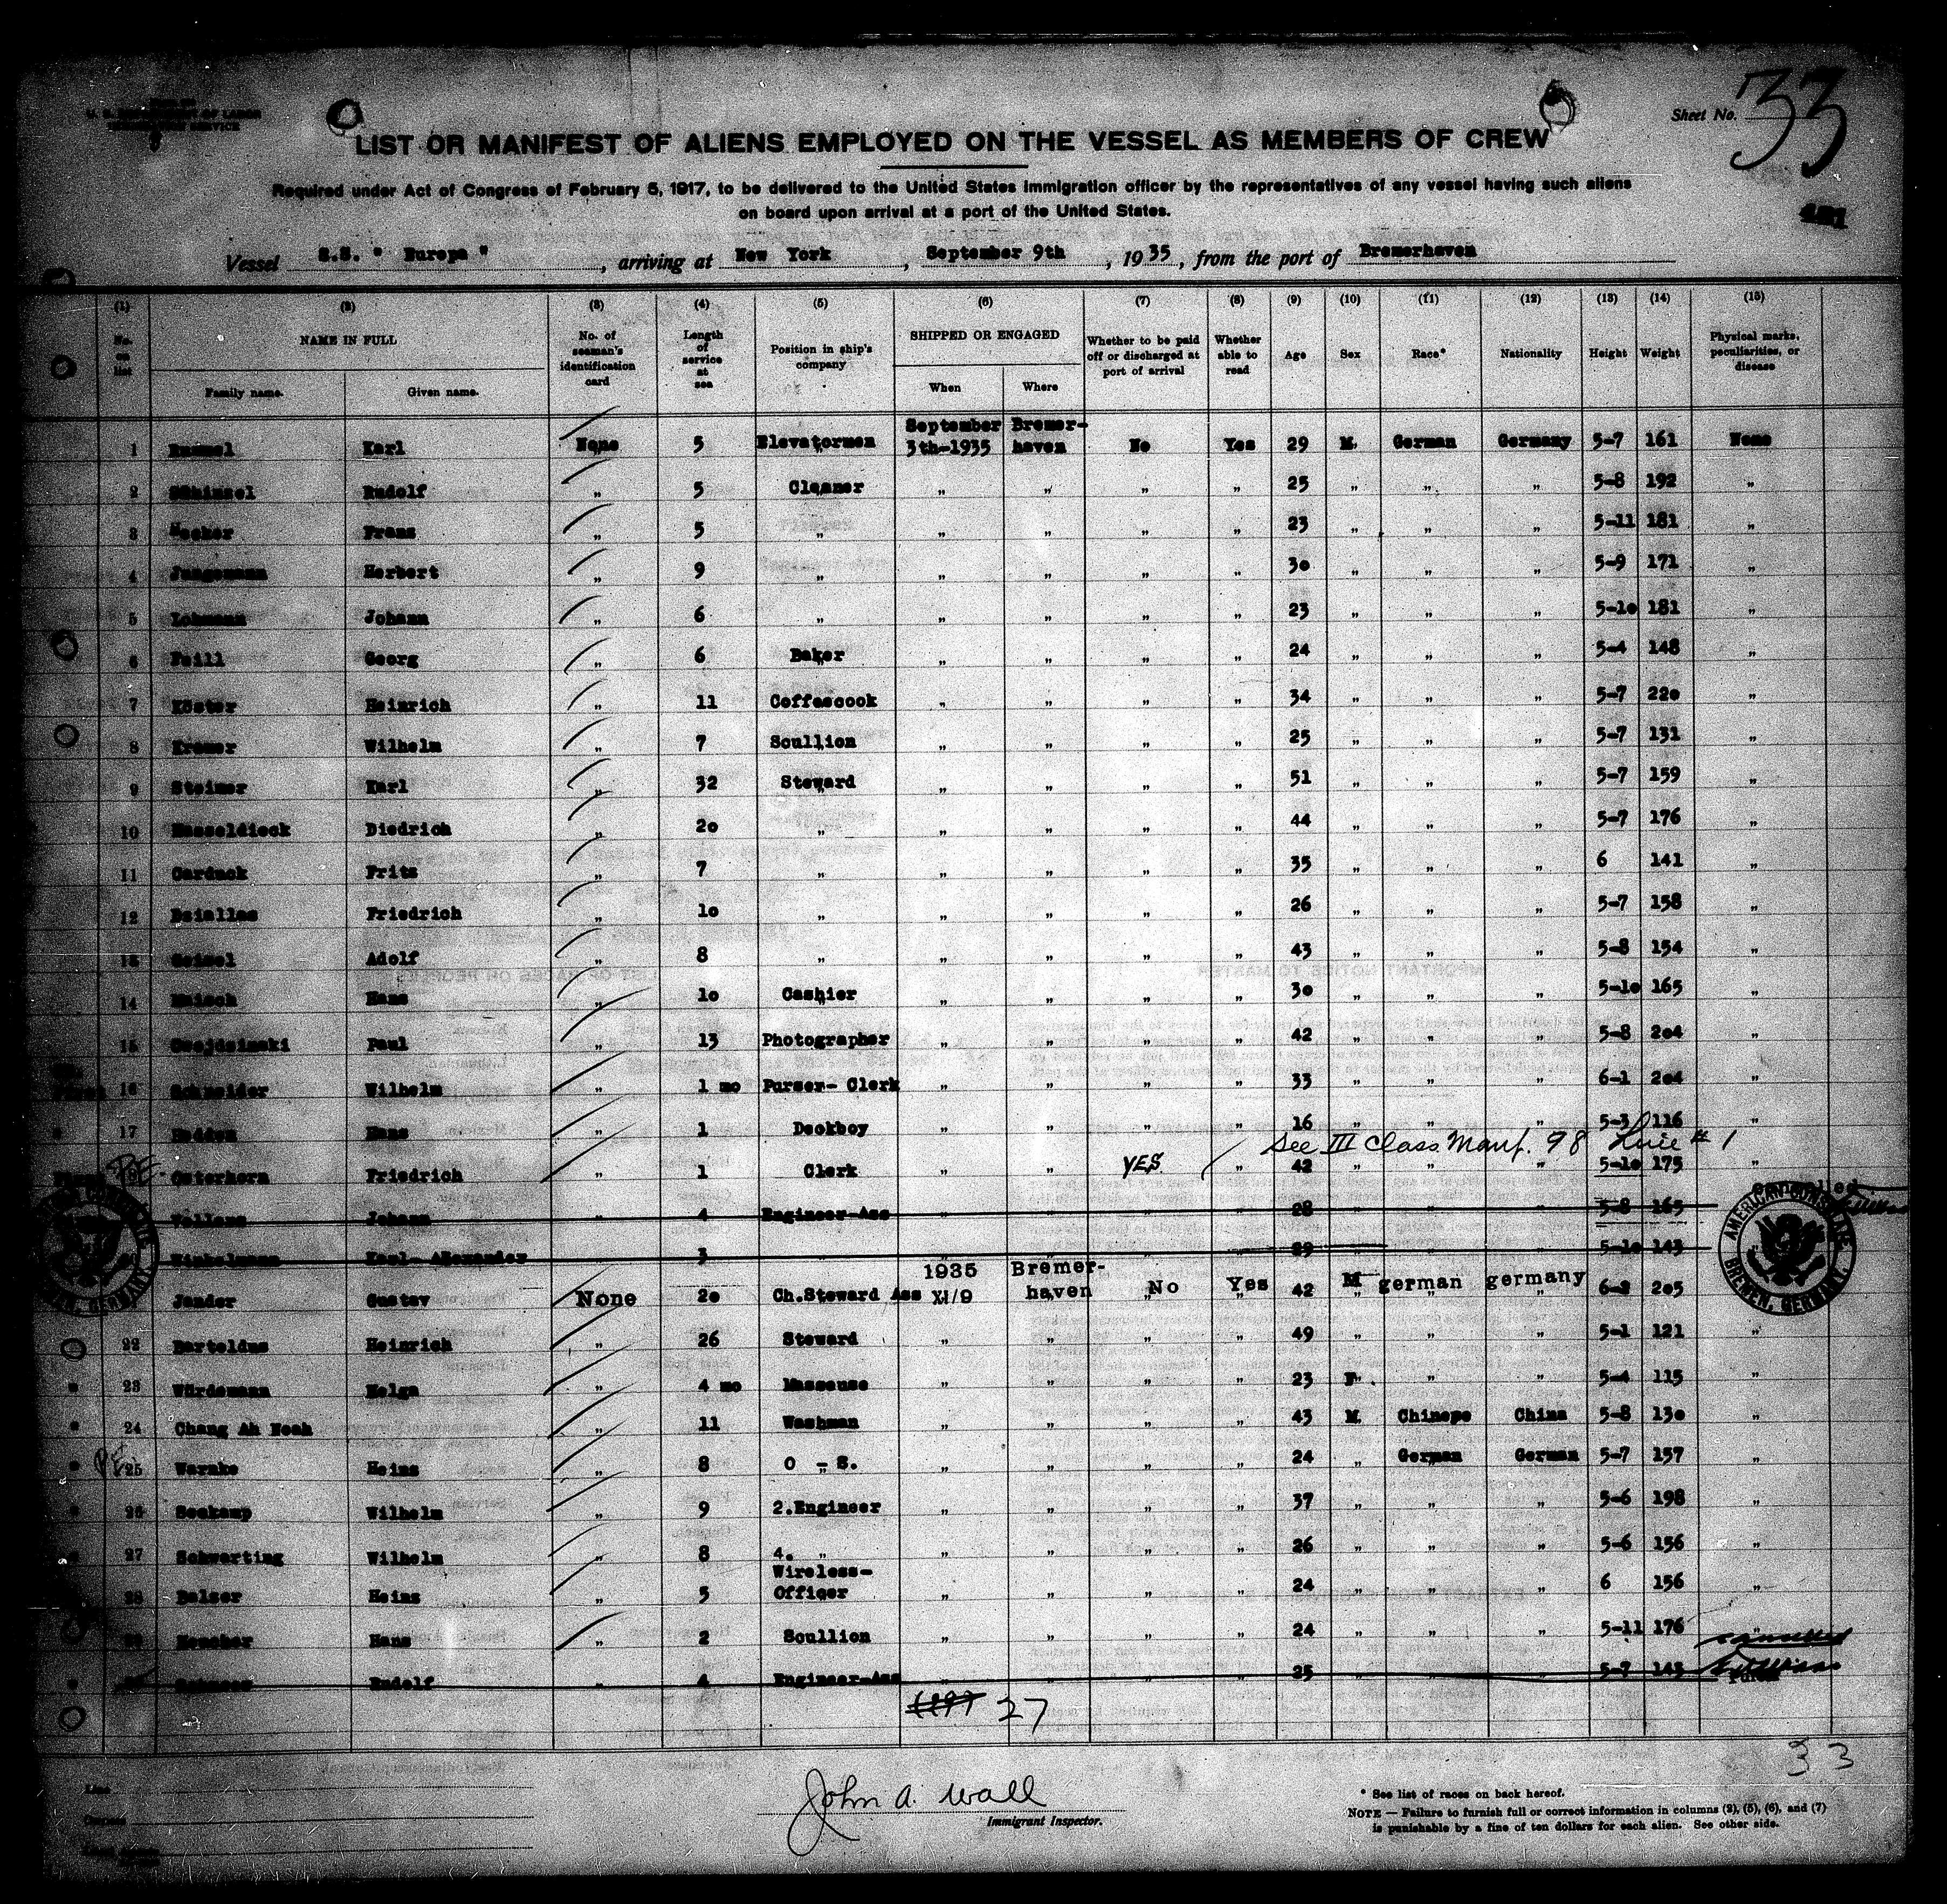 U. S. DEPARTMENT OF LABOR
IMMIGRATION SERVICE
Sheet No. 33
LIST OR MANIFEST OF ALIENS EMPLOYED ON THE VESSEL AS MEMBERS OF CREW
Required under Act of Congress of February 5, 1917, to be delivered to the United States immigration officer by the representatives of any vessel having such aliens
on board upon arrival at a port of the United States.
Vessel S.S. " Europa " , arriving at New York , September 9th , 1935 , from the port of Bremerhaven
(1) (2) (3) (4) (5) (6) (7) (8) (9) (10) (11) (12) (13) (14) (15)
No. on list NAME IN FULL Family name. Given name. No. of seaman's identification card Length of service at sea Position in ship's company SHIPPED OR ENGAGED When Where Whether to be paid off or discharged at port of arrival Whether able to read Age Sex Race* Nationality Height Weight Physical marks, peculiarities, or disease
September Bremer-
1 Karl None 5 Elevatormen 3th-1935 haven No Yes 29 M. German Germany 5-7 161 None
2 Rudolf " 5 Cleaner " " " " 25 " " " 5-8 192 "
3 Franz " 5 " " " " " 23 " " " 5-11 181 "
4 Jungemann Herbert " 9 " " " " " 30 " " " 5-9 171 "
5 Lohmann Johann " 6 " " " " " 23 " " " 5-10 181 "
6 Feill Georg " 6 Baker " " " " 24 " " " 5-4 148 "
7 Köster Heinrich " 11 Coffeecook " " " " 34 " " " 5-7 220 "
8 Kremer Wilhelm " 7 Scullion " " " " 25 " " " 5-7 131 "
9 Steimer Karl " 32 Steward " " " " 51 " " " 5-7 159 "
10 Hasseldieck Diedrich " 20 " " " " " 44 " " " 5-7 176 "
11 Carduck Fritz " 7 " " " " " 35 " " " 6 141 "
12 Dziallas Friedrich " 10 " " " " " 26 " " " 5-7 158 "
13 Geisel Adolf " 8 " " " " " 43 " " " 5-8 154 "
14 Hans " 10 Cashier " " " " 30 " " " 5-10 165 "
15 Paul " 13 Photographer " " " " 42 " " " 5-8 204 "
16 Schneider Wilhelm " 1 mo Purser- Clerk " " " " 33 " " " 6-1 204 "
17 Hans " 1 Deckboy " " " " 16 " " " 5-3 116 "
See III Class Manf. 98 Line # 1
Osterhorn Friedrich " 1 Clerk " " YES " 42 " " " 5-10 175
Johann " 4 Engineer-Ass " " " " 28 5-8 165
Winkelmann Karl- Alexander 3 " " " " " 29 5-10 143
1935 Bremer-
Jander Gustav None 20 Ch.Steward Ass XI/9 haven No Yes 42 M german germany 6-2 205
22 Bartoldus Heinrich " 26 Steward " " " " 49 " " " 5-1 121 "
23 Würdemann Helga " 4 mo Masseuse " " " " 23 F. " " 5-4 115 "
24 Chang Ah Noah " 11 Washman " " " " 43 M. Chinepe China 5-8 130 "
25 Warnke Heinz " 8 O - S. " " " " 24 " German German 5-7 157 "
26 Seekamp Wilhelm " 9 2.Engineer " " " " 37 " " " 5-6 198 "
27 Schwarting Wilhelm " 8 4. " " " " " 26 " " " 5-6 156 "
Wireless-
28 Balzer Heinz " 5 Officer " " " " 24 " " " 6 156 "
29 Hans " 2 Scullion " " " " 24 " " " 5-11 176 "
cancelled
Rudolf " 4 Engineer-Ass 25 5-7 143
27
AMERICAN CONSULATE
BREMEN, GERMANY.
33
John A. Wall
Immigrant Inspector.
* See list of races on back hereof.
NOTE — Failure to furnish full or correct information in columns (2), (5), (6), and (7)
is punishable by a fine of ten dollars for each alien. See other side.